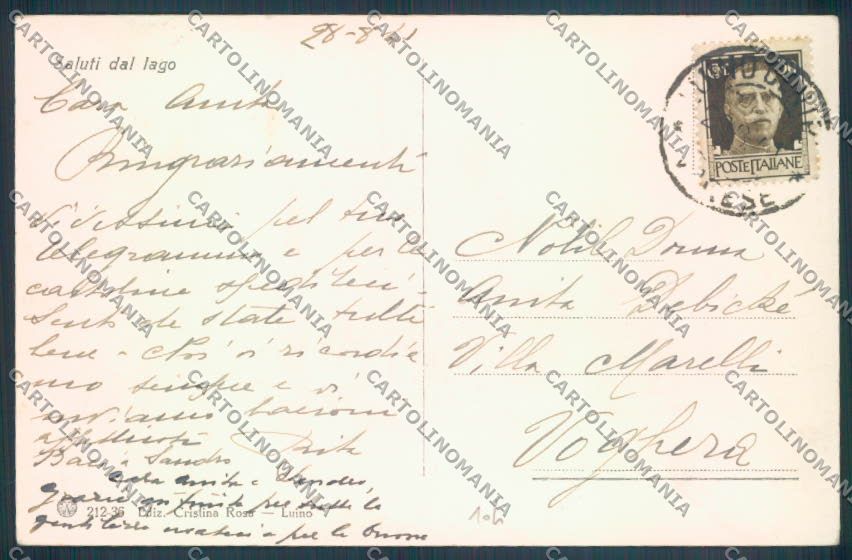 28-8-41
Saluti dal lago
Cara Anita
Ringraziamenti
vivissimi pel tuo
telegramma e per le
cartoline spediteci -
Sento che state tutti
bene - Noi vi ricordia
mo sempre e vi
inviamo bacioni
affettuosi Rita
Baci Sandro
Cara Anita e Sandro,
grazie infinite per tutte le
gentilezze e per le buone
212-36 Ediz. Cristina Rosa - Luino
POSTE ITALIANE
VARESE
Nobil Donna
Anita Debické
Villa Marelli
Voghera
CARTOLINOMANIA